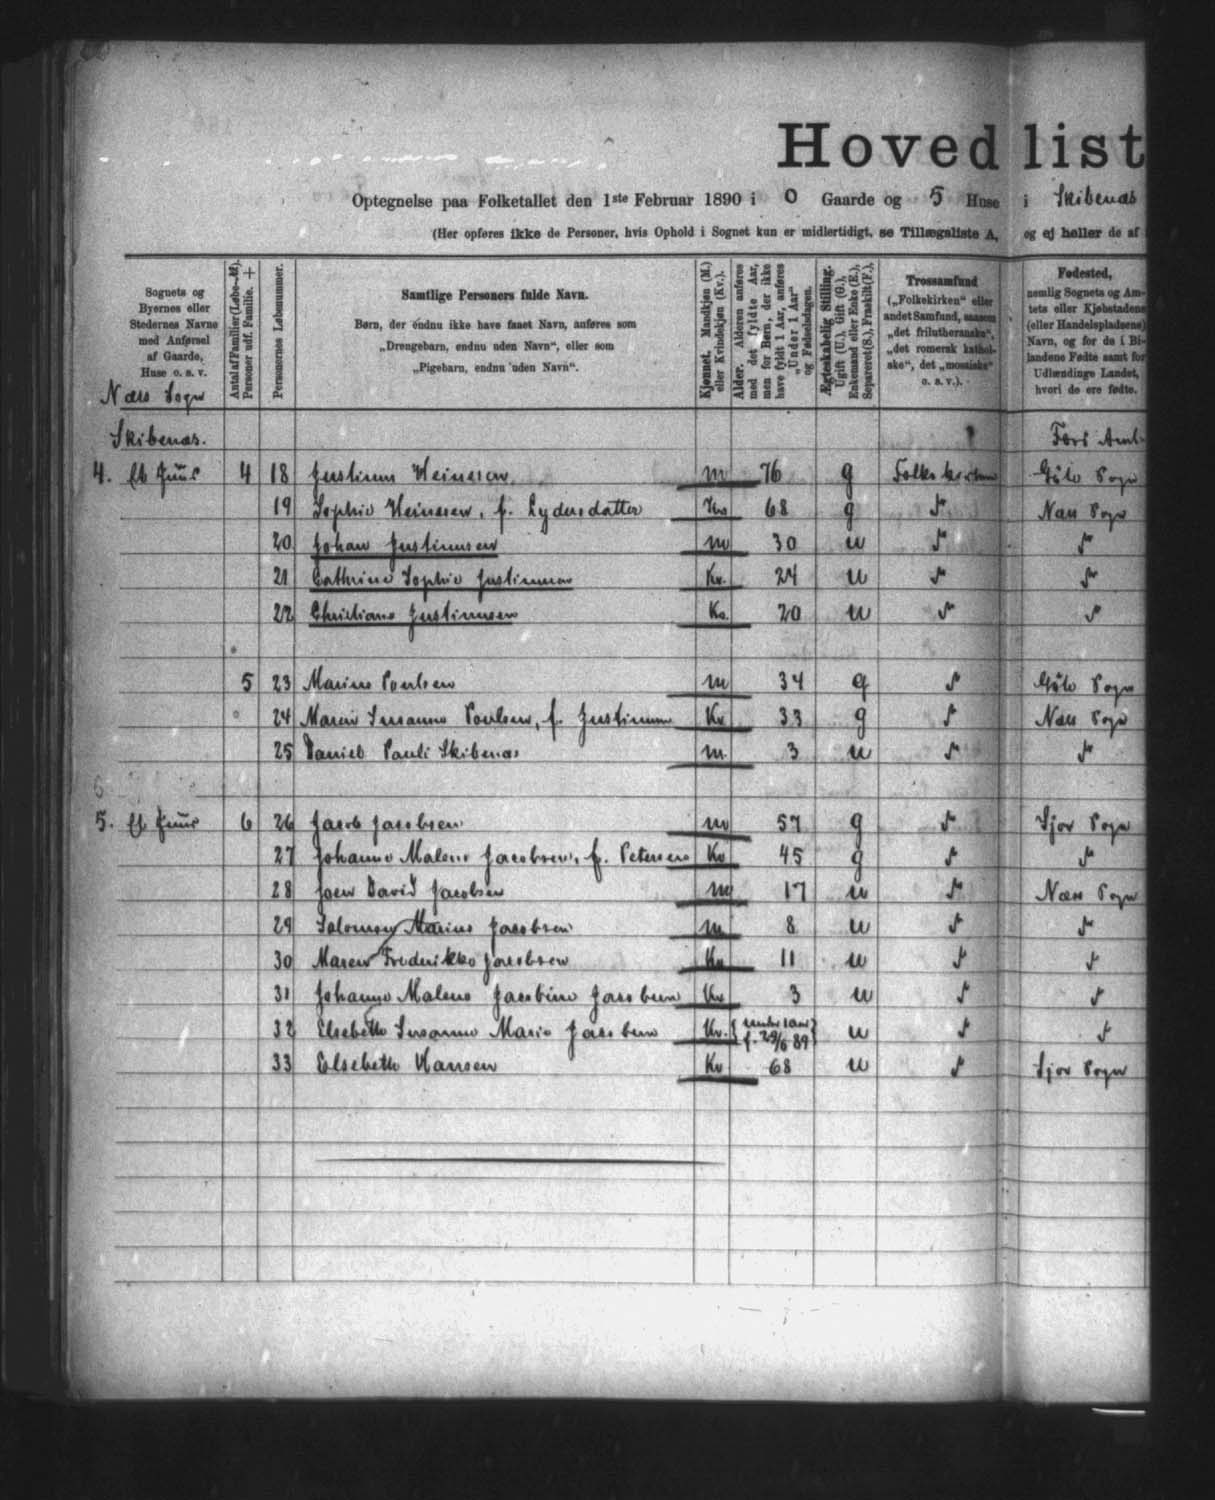 Hovedlist
Optegnelse paa Folketallet den 1ste Februar 1890 i 0 Gaarde og 5 Huse i Skibenæs
(Her opføres ikke de Personer, hvis Ophold i Sognet kun er midlertidigt, se Tillægsliste A, og ej heller de af
Sognets og Byernes eller Stedernes Navne med Anførsel af Gaarde, Huse o. s. v.
Antal af Familier (Løbe-№). Personer udf. Familie. +
Personernes Løbenummer.
Samtlige Personers fulde Navn.
Børn, der endnu ikke have faaet Navn, anføres som
„Drengebarn, endnu uden Navn“, eller som
„Pigebarn, endnu uden Navn“.
Kjønnet. Mandkjøn (M.) eller Kvindekjøn (Kv.).
Alder. Alderen anføres med det fyldte Aar, men for Børn, der ikke have fyldt 1 Aar, anføres „Under 1 Aar“ og Fødselsdagen.
Ægteskabelig Stilling. Ugift (U.), Gift (G.), Enkemand eller Enke (E.), Separeret (S.), Fraskilt (F.).
Trossamfund („Folkekirken“ eller andet Samfund, saasom „det frilutheranske“, „det romersk katholske“, det „mosaiske“ o. s. v.).
Fødested, nemlig Sognets og Amtets eller Kjøbstadens (eller Handelspladsens) Navn, og for de i Bilandene Fødte samt for Udlændinge Landet, hvori de ere fødte.
Næs Sogn
Skibenæs. Færø Amt.
4. Et Huus 4 18 Justinus Heinesen m 76 g Folkekirken Gøto Sogn
19 Sophie Heinesen, f. Lydersdatter Kv 68 g Næs Sogn
20 Johan Justinusen m 30 u
21 Cathrine Sophie Justinusen Kv. 24 u
22 Christiane Justinusen Kv. 20 u
5 23 Marius Poulsen m 34 g Gøto Sogn
24 Maren Susanne Poulsen, f. Justinusen Kv 33 g Næs Sogn
25 Daniel Pauli Skibenæs m. 3 u
5. Et Huus 6 26 Jacob Jacobsen m 57 g Sjov Sogn
27 Johanne Malene Jacobsen, f. Petersen Kv 45 g
28 Joen David Jacobsen m 17 u Næs Sogn
29 Salomon Marius Jacobsen m 8 u
30 Maren Frederikke Jacobsen Kv 11 u
31 Johanne Malene Jacobine Jacobsen Kv 3 u
32 Elsebeth Susanne Marie Jacobsen Kv. {under 1 aar f. 29/6 89} u
33 Elsebeth Hansen Kv 68 u Sjov Sogn